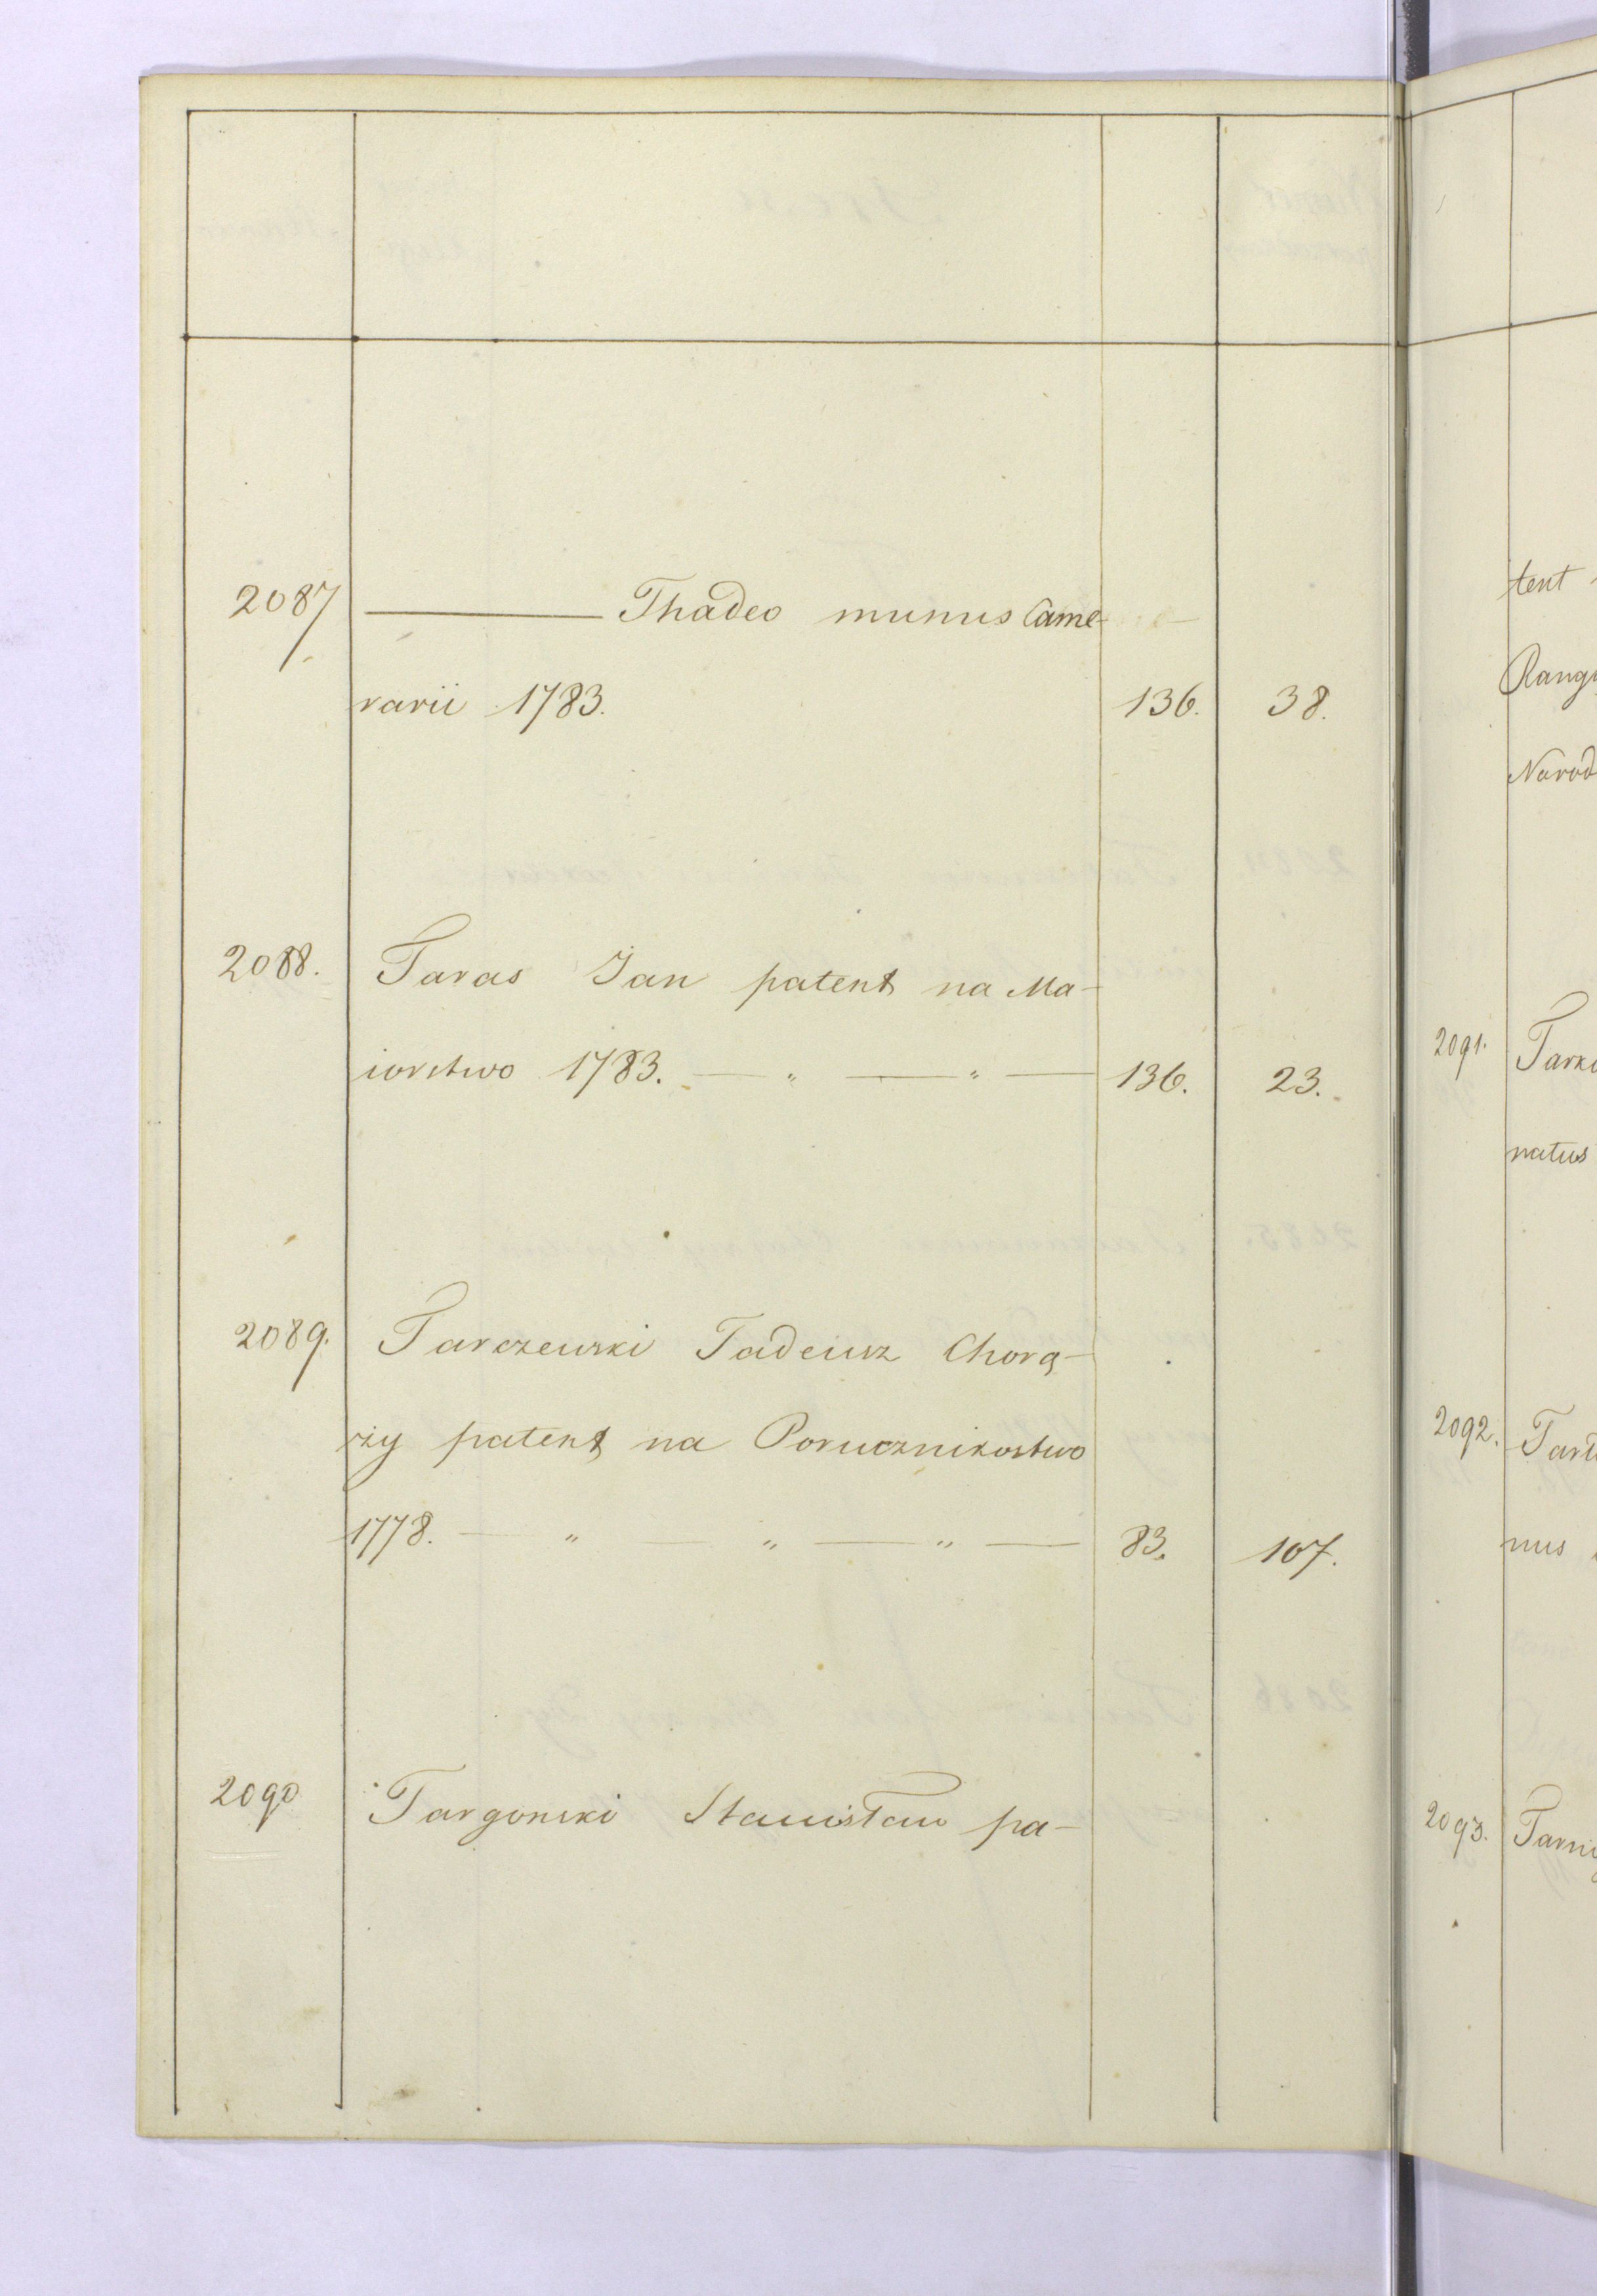 2087 ——— Thadeo munus Came-
rarii 1783. 136. 38.
2088. Taras Jan patent na Ma-
iorstwo 1783. — " — " — 136. 23.
2089. Tarczewski Tadeusz Chorą-
ży patent na Porucznikostwo
1778. — " — " — " — 83. 107.
2090 Targonski Stanisław pa-
tent
Rang
Narod
2091. Tark
natus
2092. Tar
nus
2093. Tarn